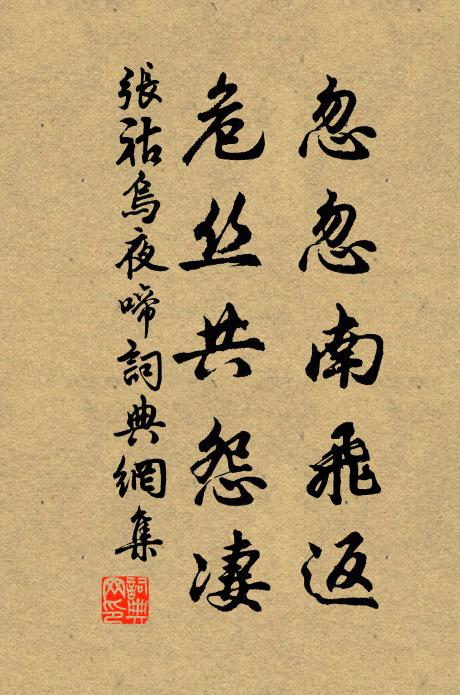 忽忽南飛返
危丝共怨凄
張祜烏夜啼詞典網集
詞典网印